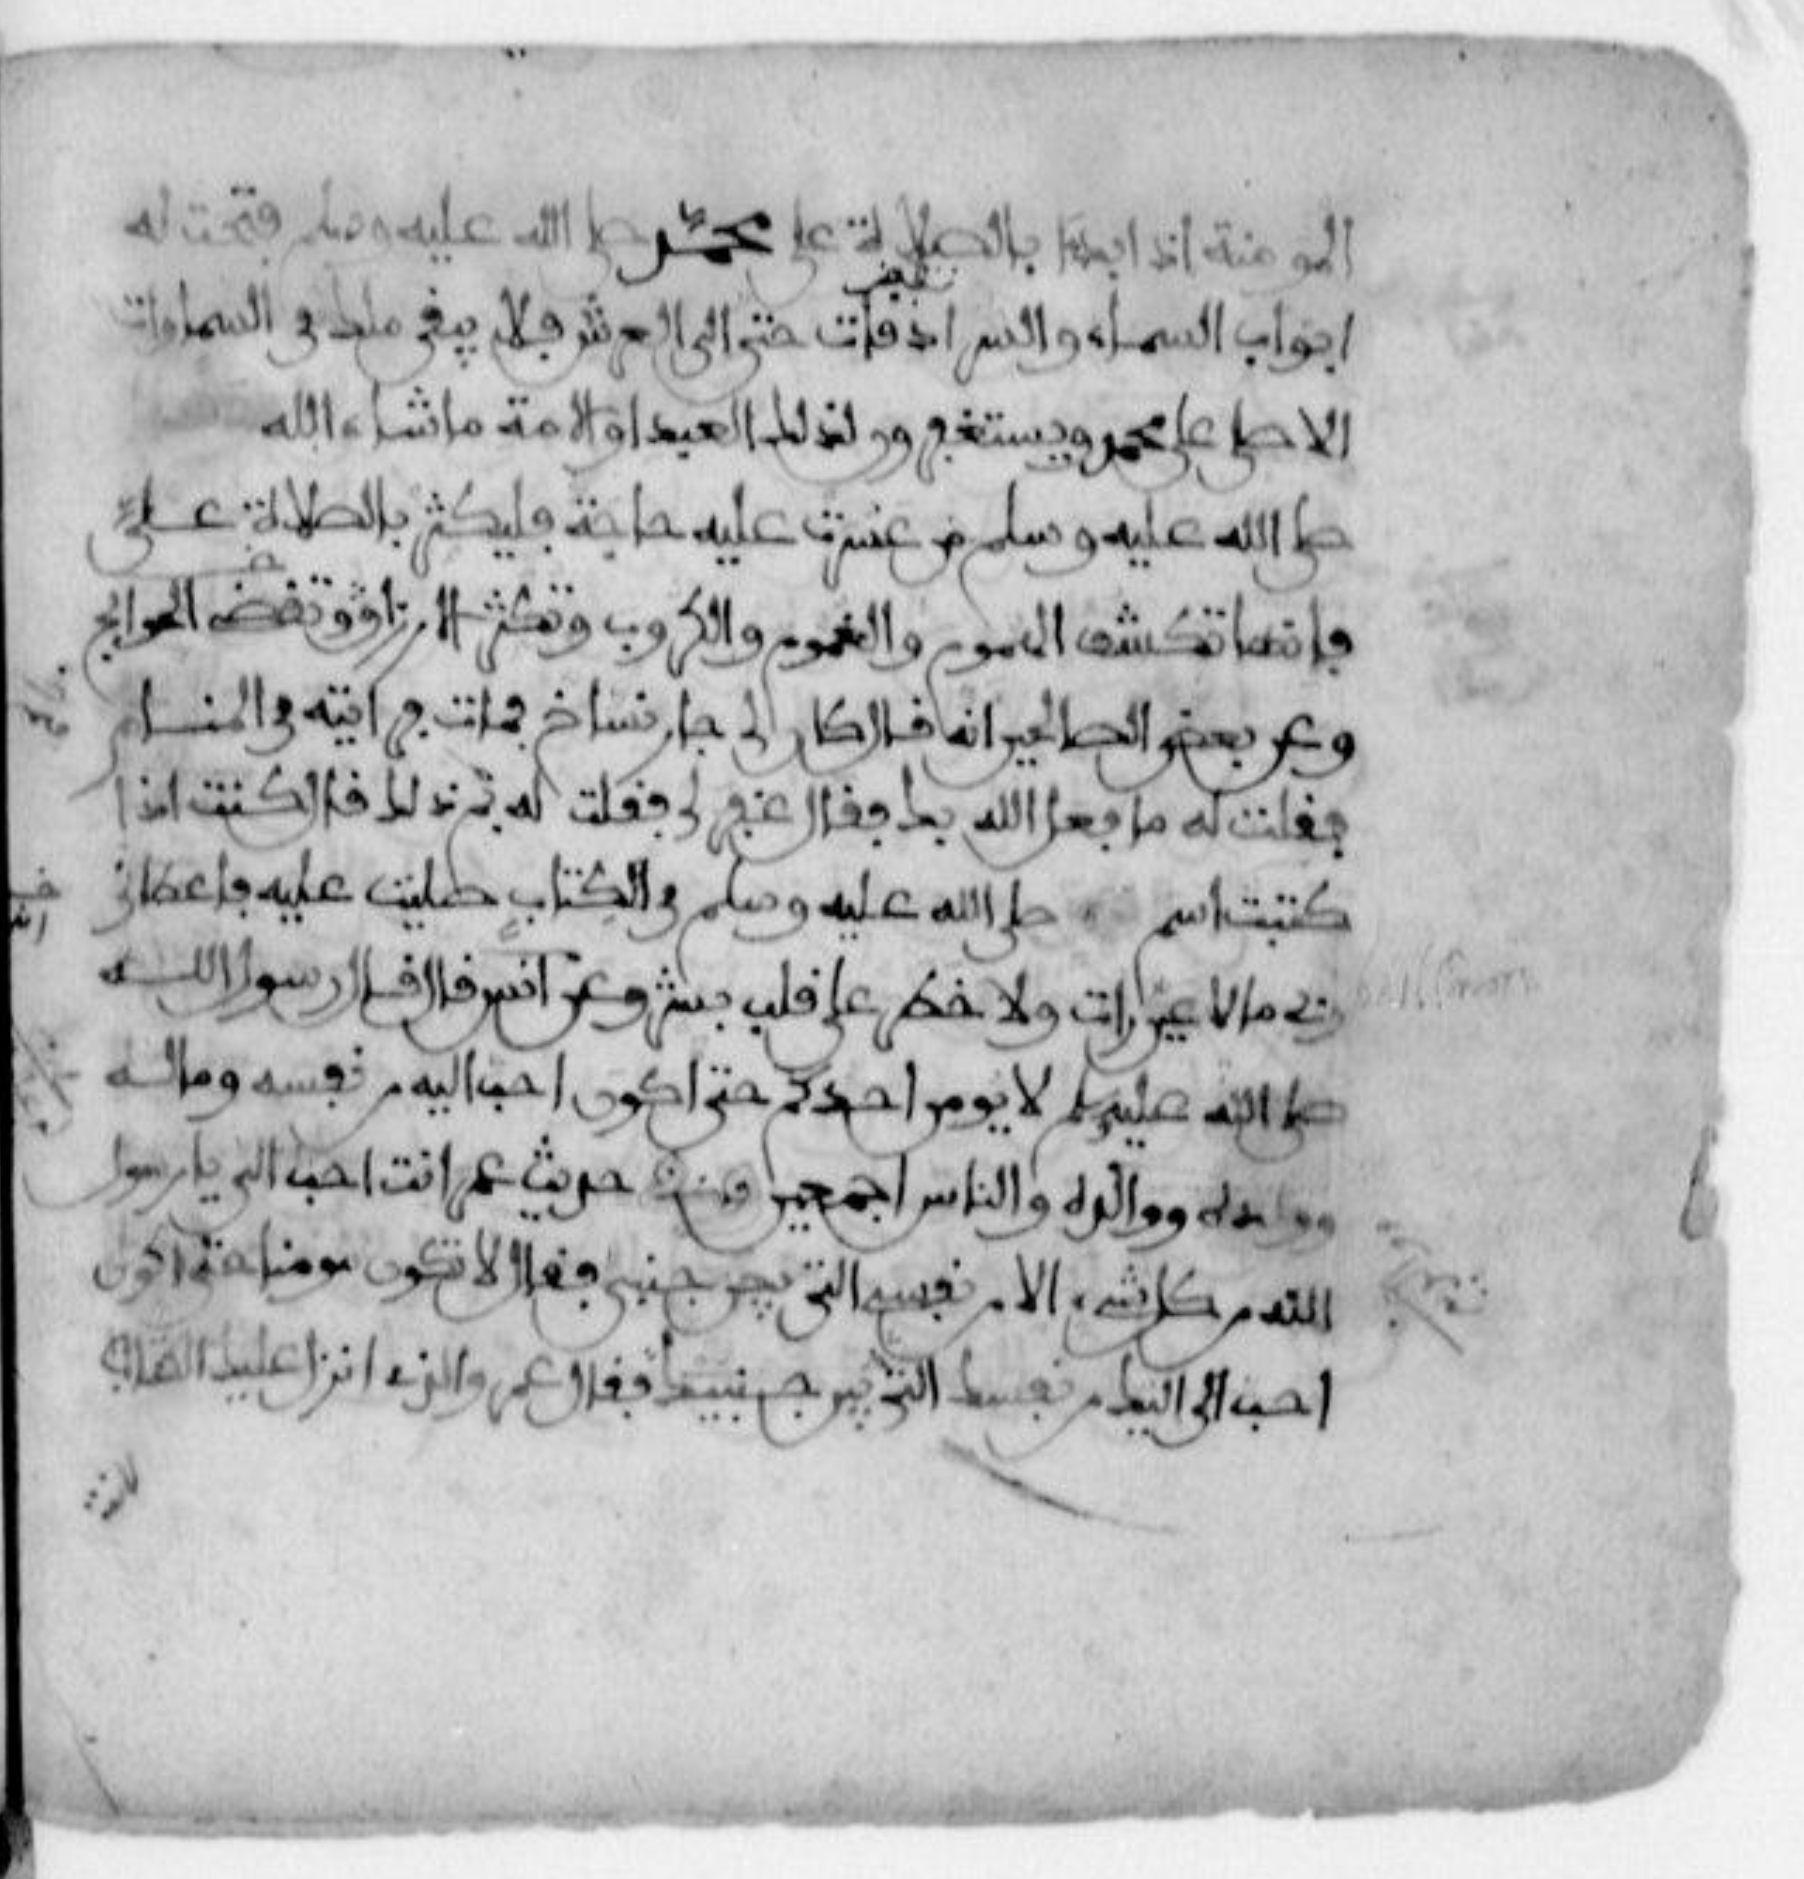 المومنة اذا ابدا بالصلاة على محمد صلى الله عليه وسلم فتحت له
ابواب السماء والسرادقات حتى الى العرش فلا يبقى ملك في السماوات
الا صلى على محمد ويستغفرون لذلك العبد او الامة ما شاء الله
صلى الله عليه وسلم من عسرت عليه حاجة فليكثر بالصلاة علي
فانها تكشف الهموم والغموم والكروب وتكثر الارزاق وتقضي الحوايج
وعن بعض الصالحين انه قال كان لي جار نساخ فمات فرايته في المنام
فقلت له ما فعل الله بك فقال غفر لي فقلت له فبم ذلك قال كنت اذا
كتبت اسم صلى الله عليه وسلم في الكتاب صليت عليه فاعطاني
ربي ما لا عين رات ولا خطر على قلب بشر وعن انس قال قال رسول الله
صلى الله عليه وسلم لا يومن احدكم حتى اكون احب اليه من نفسه وماله
وولده ووالده والناس اجمعين وفي حديث عمر انت احب الي يا رسول
الله من كل شيء الا من نفسي التي بين جنبي فقال لا تكون مومنا حتى اكون
احب الى اليك من نفسك التي بين جنبيك فقال عمر والذي انزل عليك الكتاب